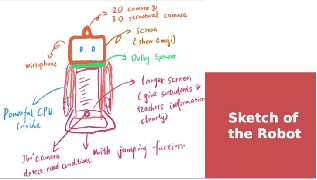 2D camera &
3D structural camera
screen
(show emoji)
microphone
Dolby Speaker
larger screen
(give students &
teachers information
clearly)
Powerful CPU
inside
camera
detect road conditions.
with jumping function
Sketch of
the Robot